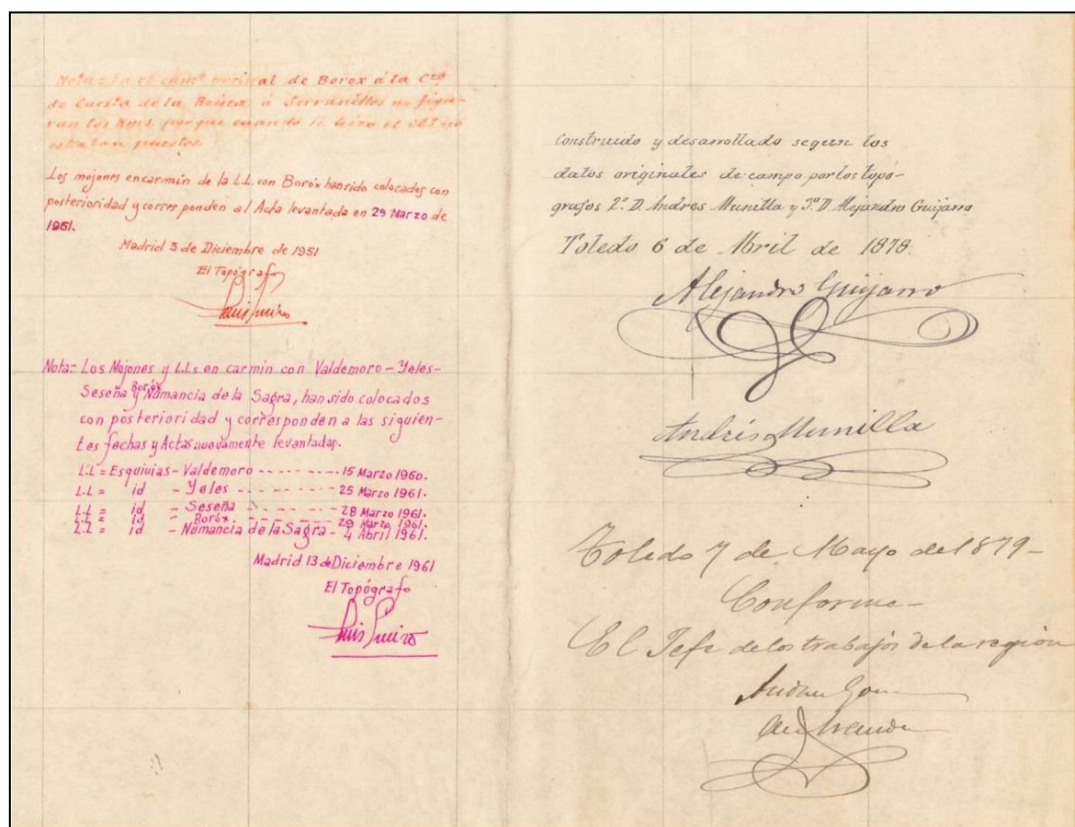 Nota= En el cam.º vecinal de Borox á la Cra
de Cuesta de la Reina á Serranillos no figu-
ran los Kms. porque cuando se hizo el
estaban puestos.
Los mojones en carmín de la L.L. con Boróx han sido colocados con
posterioridad y corresponden al Acta levantada en 29 Marzo de
1961.
Madrid 3 de Diciembre de 1951
El Topógrafo
Nota= Los Mojones y L.Ls. en carmin con Valdemoro - Yeles-
Boróx
Seseña y Numancia de la Sagra, han sido colocados
con posterioridad y corresponden a las siguien-
tes fechas y Actas nuevamente levantadas.
L.L = Esquivias - Valdemoro - - - - - - - - 15 Marzo 1960.
L.L = id - Yeles - - - - - - - - - - 25 Marzo 1961.
L.L = id - Seseña - - - - - - - - - 28 Marzo 1961.
L.L = id - Boróx - - - - - - - - - 29 Marzo 1961.
L.L = id - Numancia de la Sagra - 4 Abril 1961.
Madrid 13 de Diciembre 1961
El Topógrafo
Construido y desarrollado segun los
datos originales de campo por los topo-
grafos 2.º D. Andres Munilla y 3.º D. Alejandro Guijarro
Toledo 6 de Abril de 1878.
Alejandro Guijarro
Andrés Munilla
Toledo 7 de Mayo de 1879-
Conforme-
El Jefe de los trabajos de la region